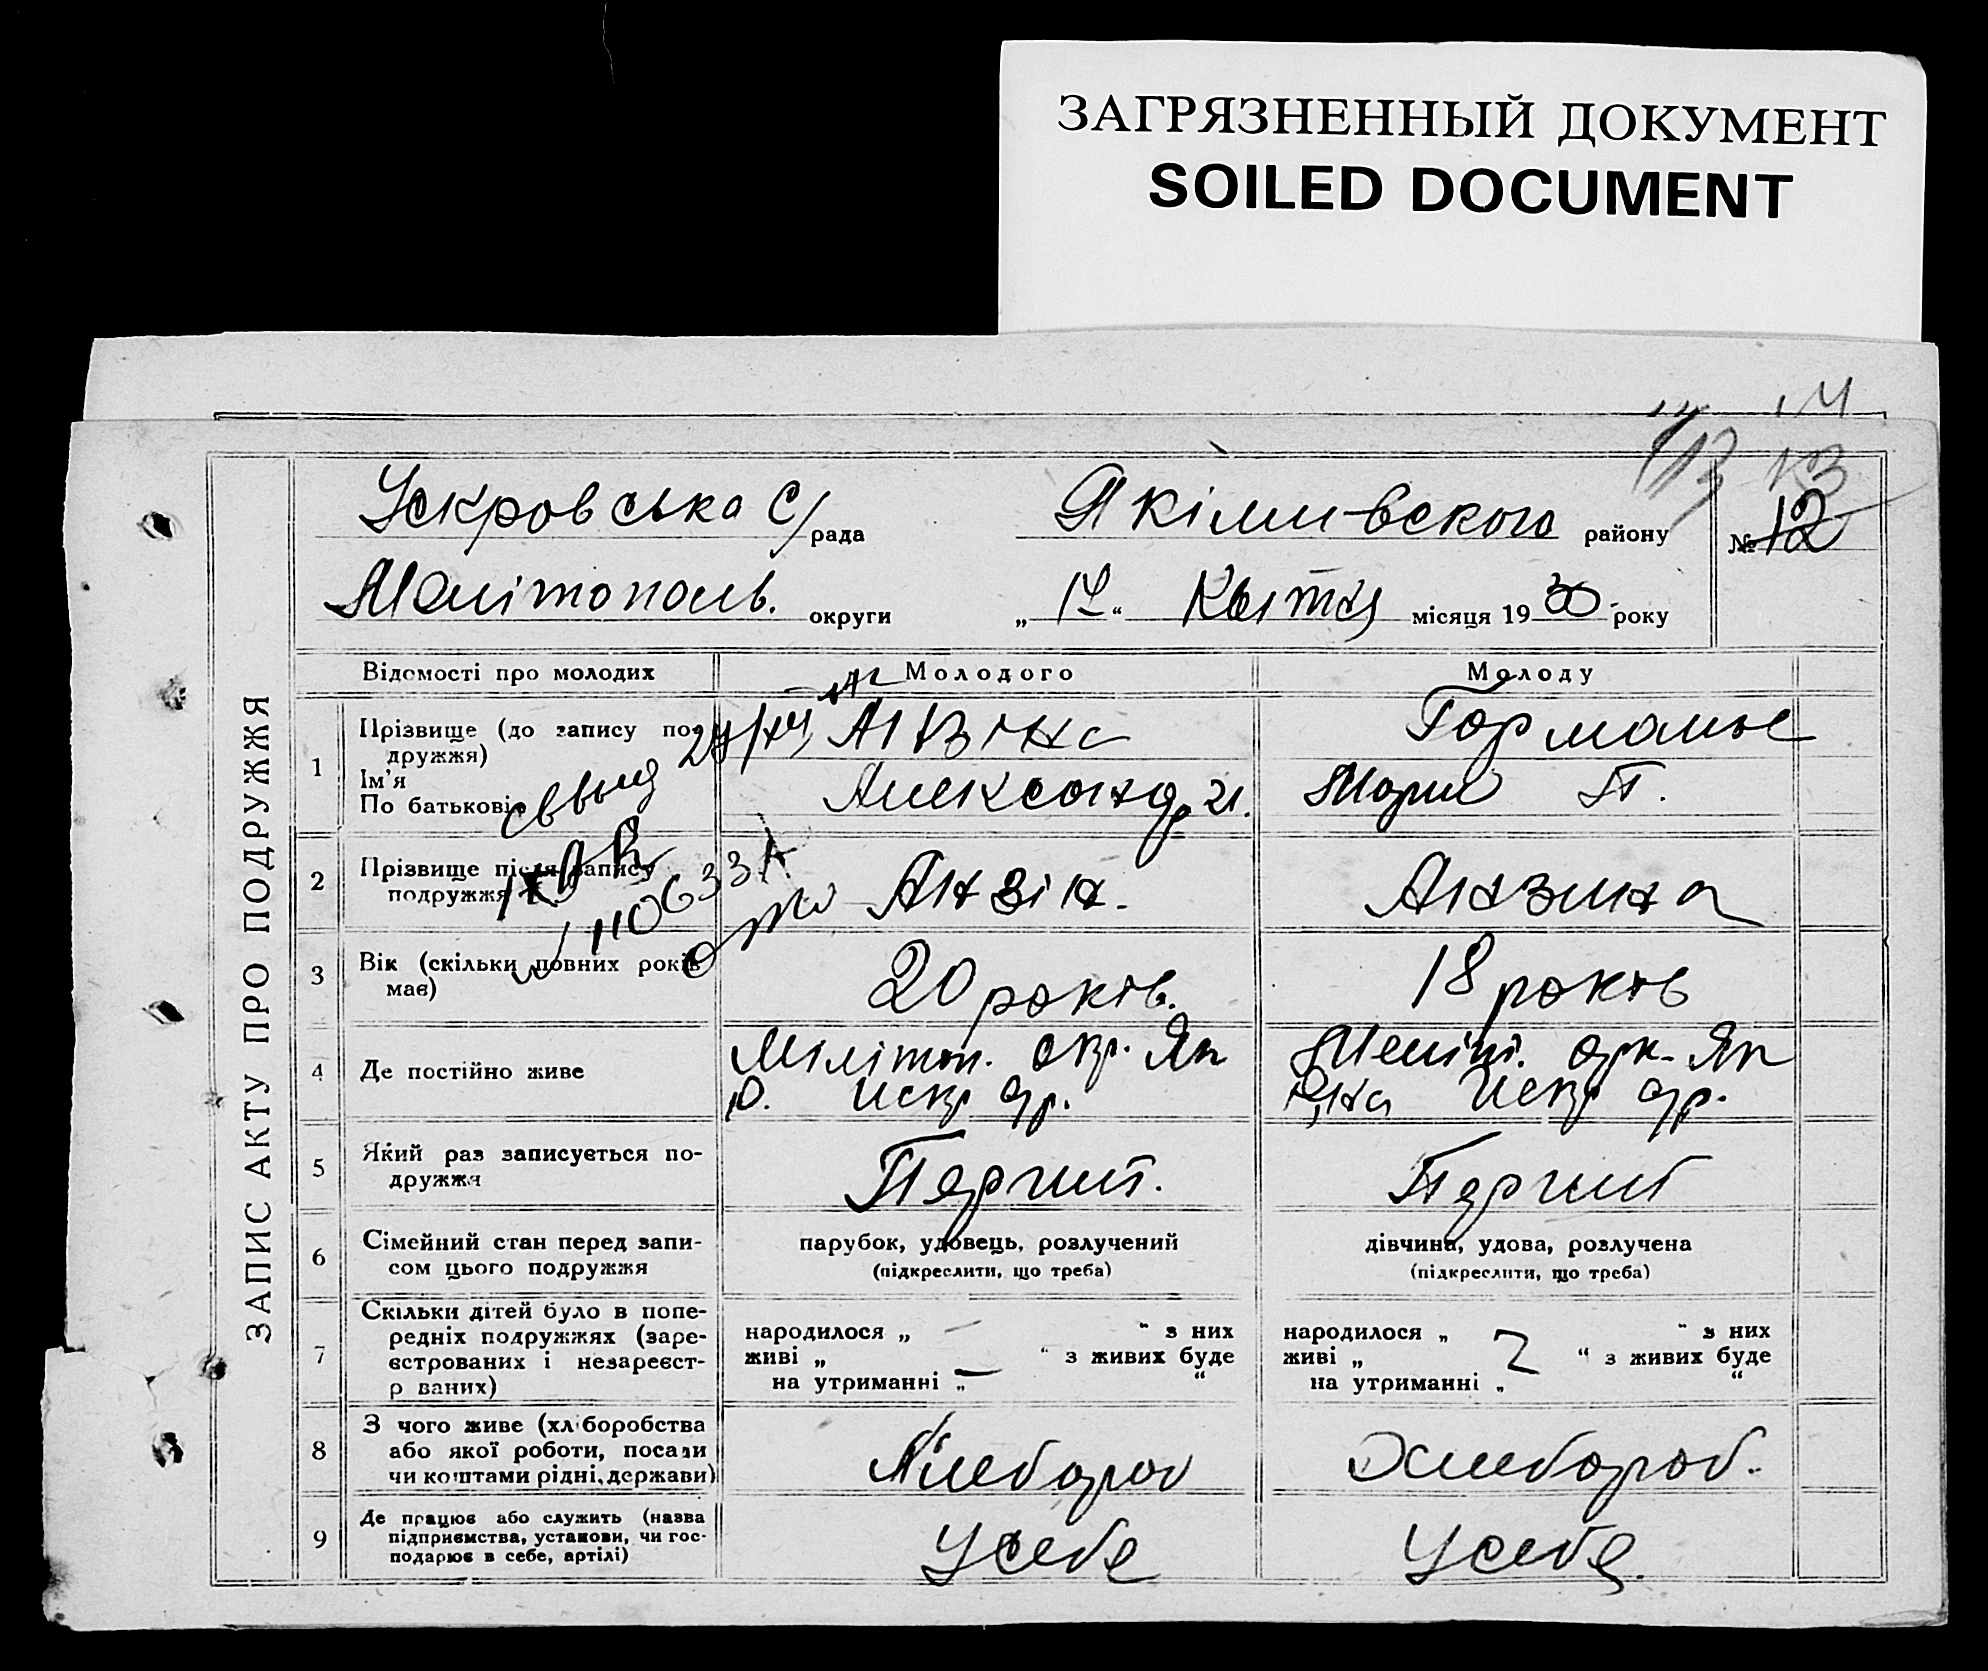 ЗАГРЯЗНЕННЫЙ ДОКУМЕНТ
SOILED DOCUMENT
ЗАПИС АКТУ ПРО ПОДРУЖЖЯ
Іскровська с/рада Якімивского району № 12
Мелітополь. округи „ 14 “ Квітня місяця 1930 року
Відомості про молодих Молодого Молоду
1 Прізвище (до запису подружжя) Горманье
Ім'я
По батькові Александр И. Мария П.
2 Прізвище після запису подружжя Анзін. Анзина
3 Вік (скільки повних років має) 20 років. 18 років
4 Де постійно живе Міліт. окр. Як Меліт. окр. Як
Искр др. Искр др.
5 Який раз записується по-
дружжя Перший. Перший
6 Сімейний стан перед запи-
сом цього подружжя парубок, удовець, розлучений дівчина, удова, розлучена
(підкреслити, що треба) (підкреслити, що треба)
7 Скільки дітей було в попе-
редніх подружжях (заре-
єстрованих і незареєст-
р ваних)
народилося „ — “ з них народилося „ “ з них
живі „ “ з живих буде живі „ “ з живих буде
на утриманні „ — “ на утриманні „ “
8 З чого живе (хліборобства
або якої роботи, посади
чи коштами рідні, держави) Хлебороб Хлебороб.
9 Де працює або служить (назва
підприємства, установи, чи гос-
подарює в себе, артілі) У себе У себе.